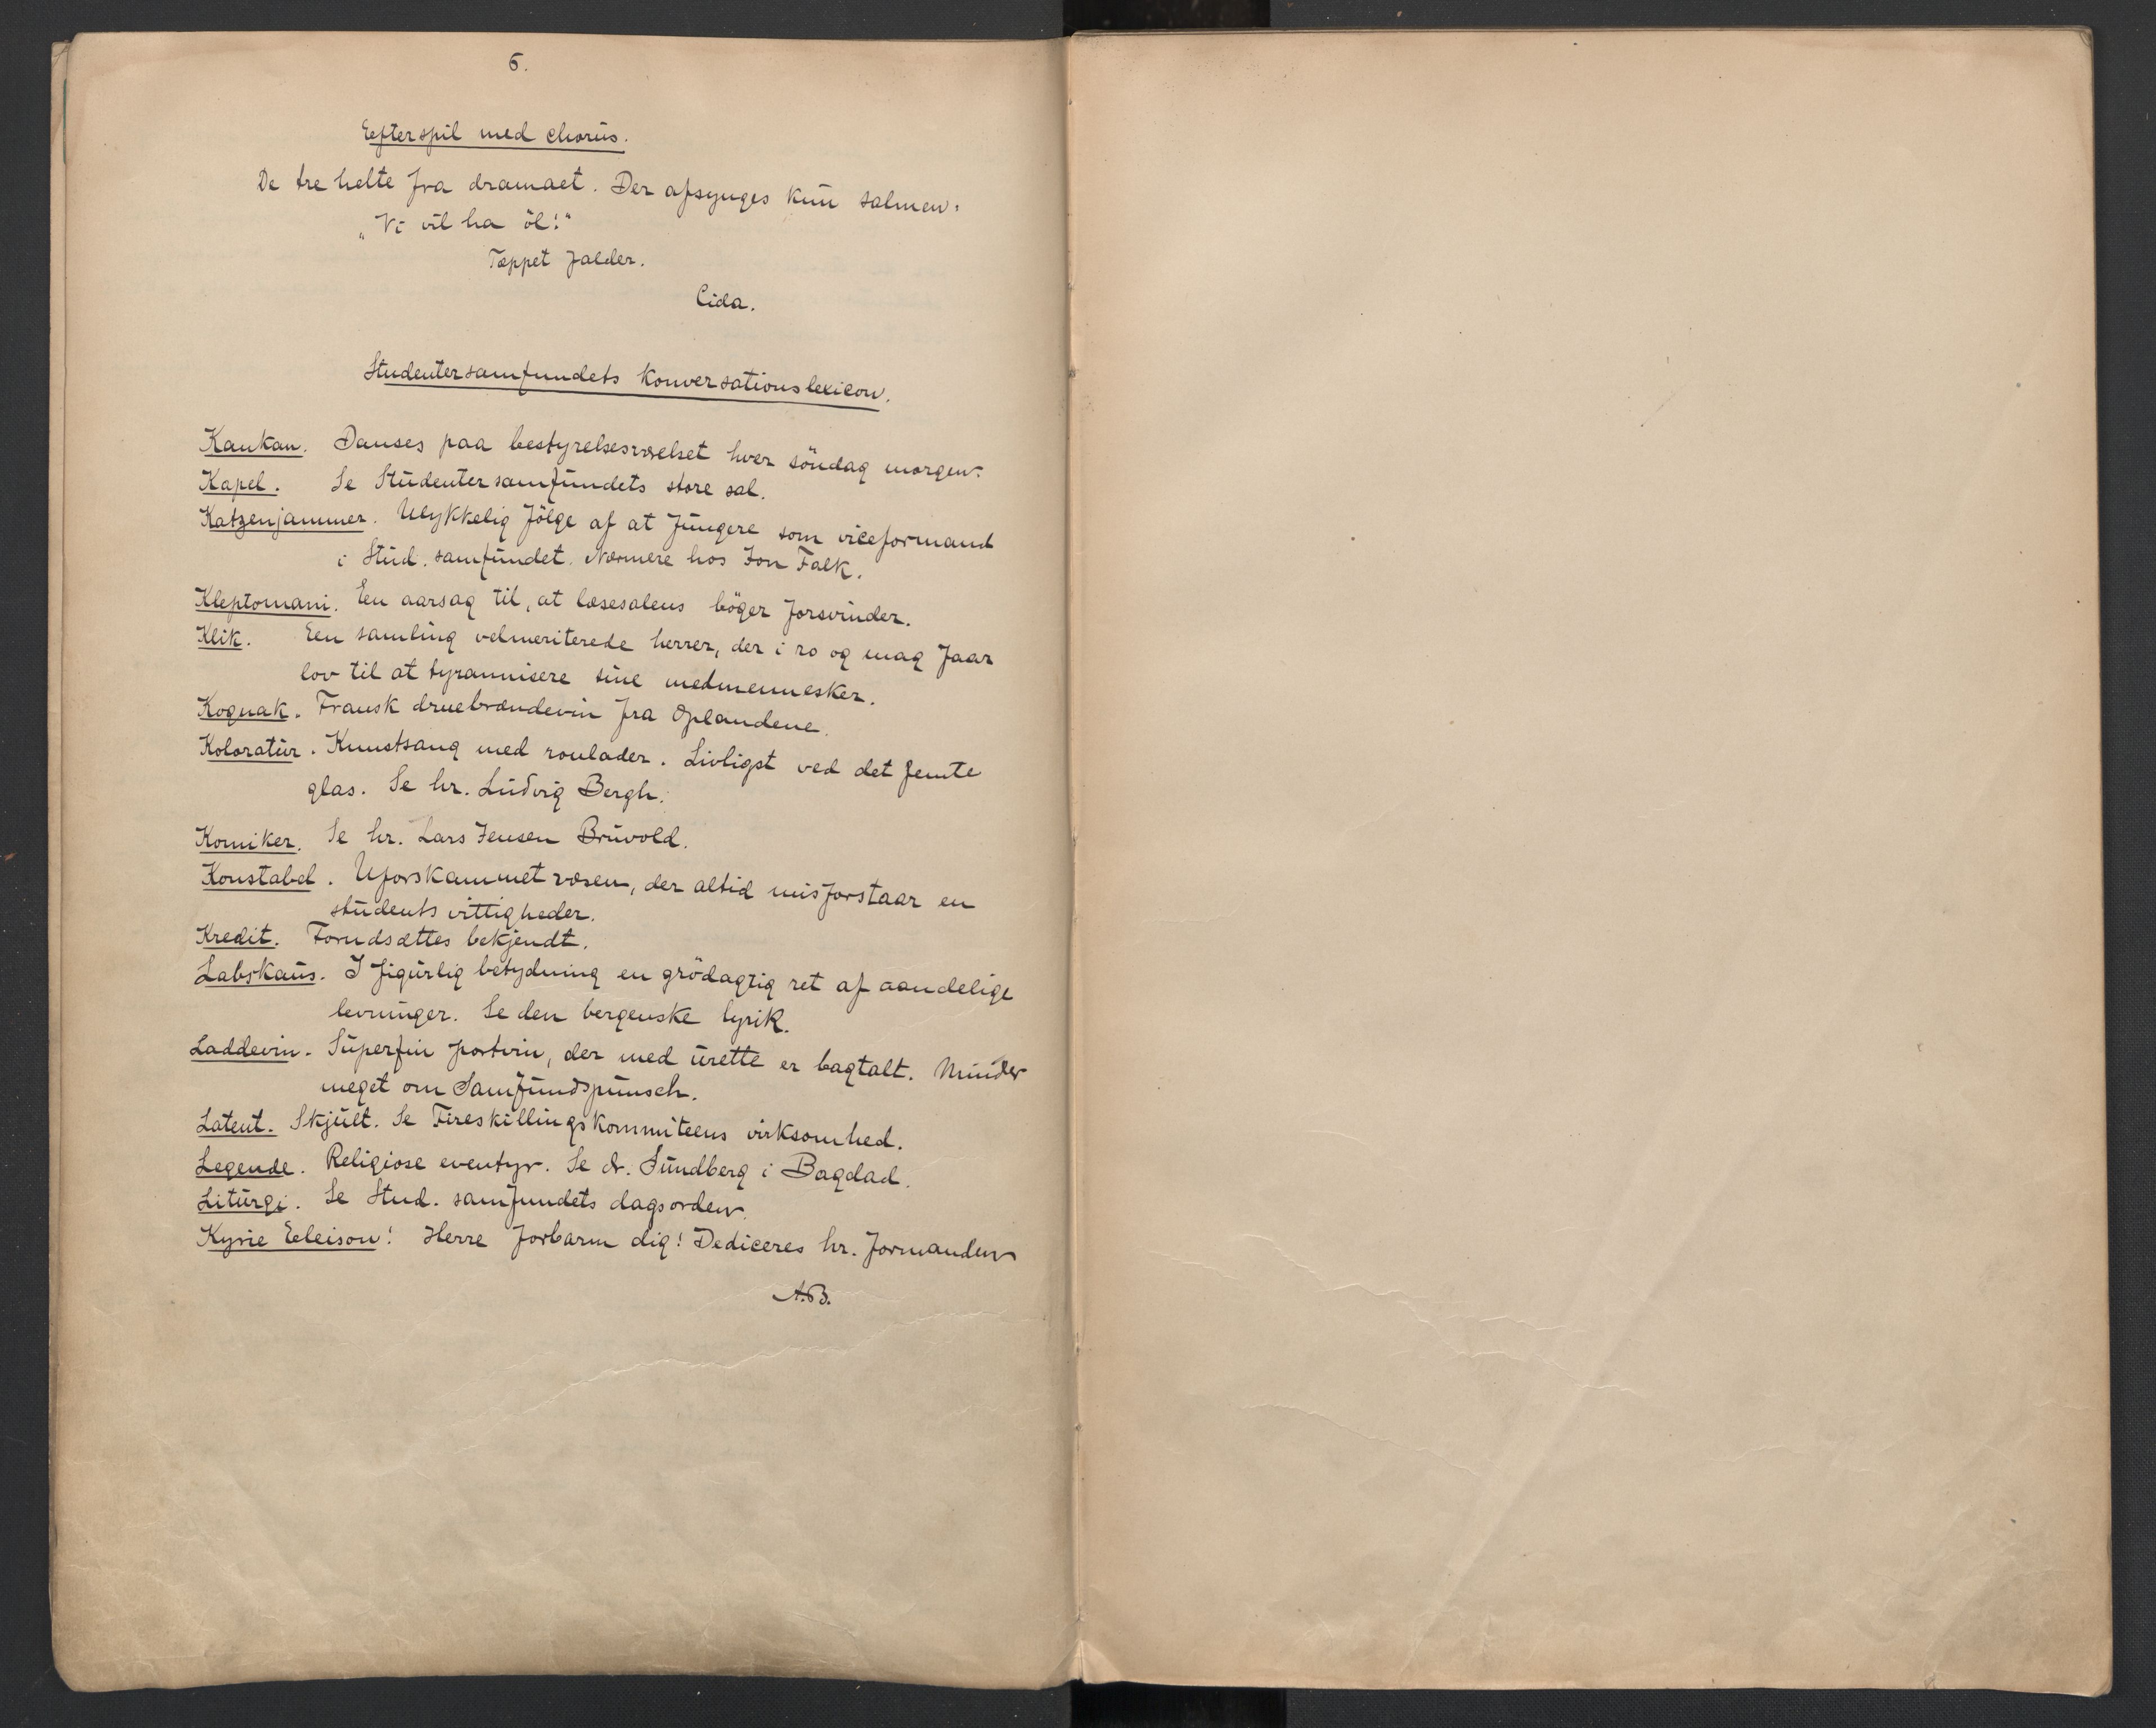 6.
Efterspil med chorus.
De tre helte fra dramaet. Der afsynges kun salmen:
„Vi vil ha öl!"
Tæppet falder.
Cida.
Studentersamfundets Konversationslexicon.
Kankan. Danses paa bestyrelsesværelset hver söndag morgen.
Kapel. Se Studentersamfundets store sal.
Katzenjammer. Ulykkelig fölge af at fungere som viceformand
i Stud. samfundet. Nærmere hos Jon Falk.
Kleptomani. En aarsag til, at læsesalens böger forsvinder.
Klik. En samling velmeriterede herrer, der i ro og mag faar
lov til at tyrannisere sine medmennesker.
Kognak. Fransk druebrændevin fra Oplandene.
Koloratur. Kunstsang med roulader. Livligst ved det femte
glas. Se hr. Ludvig Bergh.
Komiker. Se hr. Lars Jensen Bruvold.
Konstabel. Uforskammet væsen, der altid misforstaar en
students vittigheder.
Kredit. Forudsættes bekjendt.
Labskaus. I figurlig betydning en grödagtig ret af aandelige
levninger. Se den bergenske lyrik.
Laddevin. Superfin portvin, der med urette er bagtalt. Minder
meget om Samfundspunsch.
Latent. Skjult. Se Fireskillingskommiteens virksomhed.
Legende. Religiøse eventyr. Se dr. Sundberg i Bagdad.
Liturgi. Se Stud. samfundets dagsorden.
Kyrie Eleison! Herre forbarm dig! Dediceres hr. formanden
A.B.